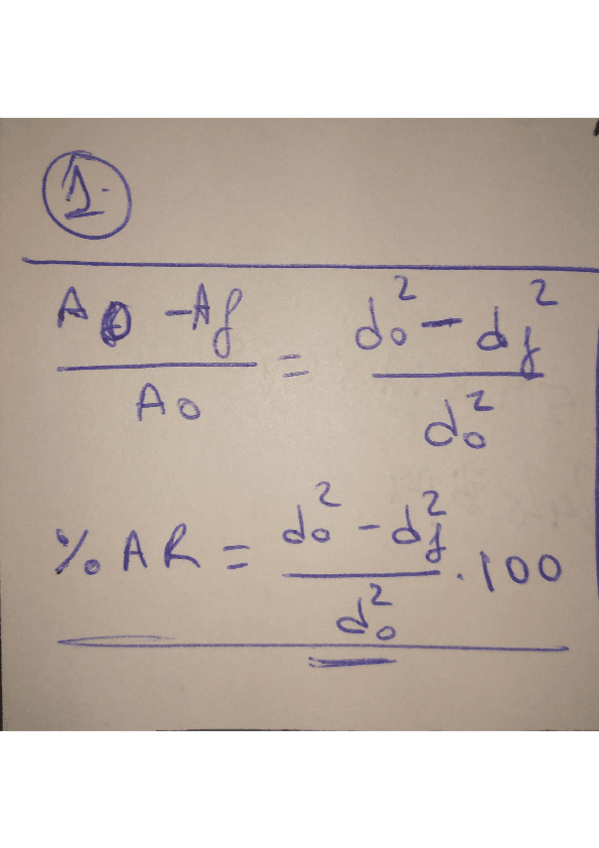 1.
A0 - Af / A0 = d0² - df² / d0²
% AR = d0² - df² / d0² . 100